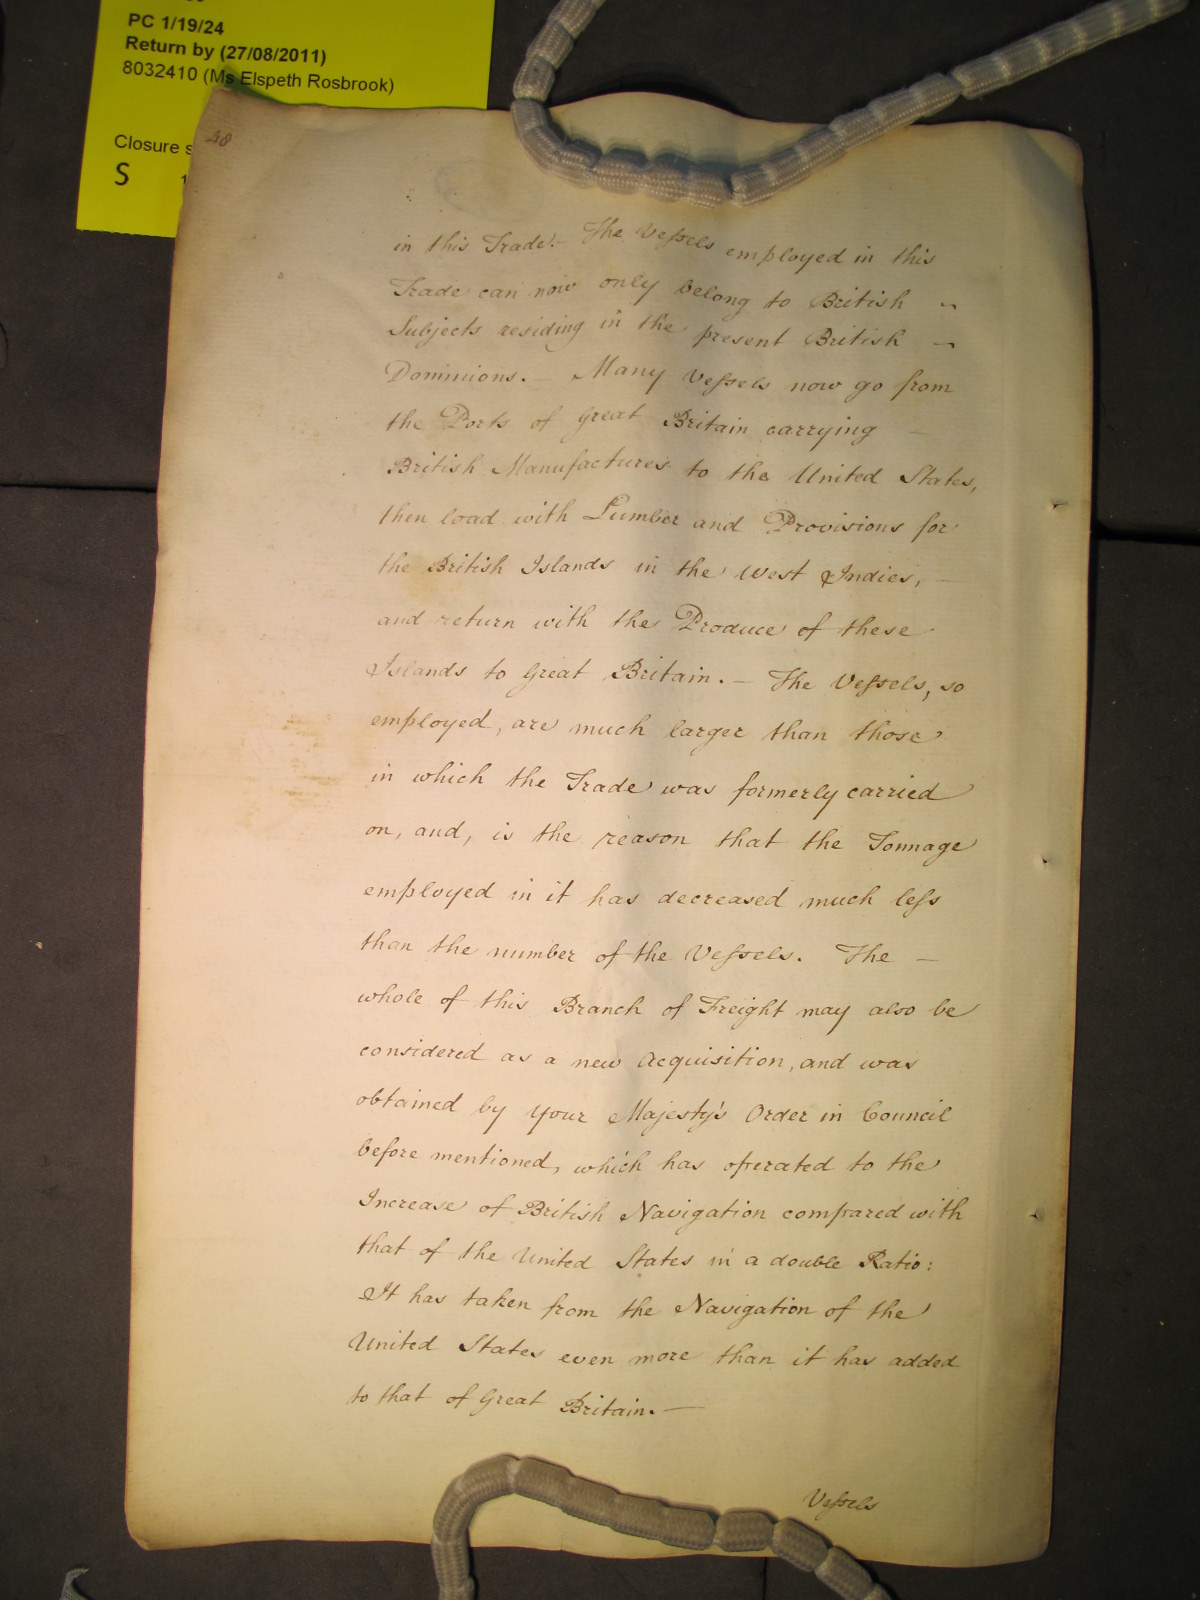 PC 1/19/24
Return by (27/08/2011)
8032410 (Ms Elspeth Rosbrook)
Closure s
S
48
in this Trade.- The Vessels employed in this
Trade can now only belong to British
Subjects residing in the present British
Dominions. - Many Vessels now go from
the Ports of Great Britain carrying -
British Manufactures to the United States,
then load with Lumber and Provisions for
the British Islands in the West Indies, -
and return with the Produce of these
Islands to Great Britain. - The Vessels, so
employed, are much larger than those
in which the Trade was formerly carried
on, and, is the reason that the Tonnage
employed in it has decreased much less
than the number of the Vessels. The -
whole of this Branch of Freight may also be
considered as a new Acquisition, and was
obtained by Your Majesty's Order in Council
before mentioned, which has operated to the
Increase of British Navigation compared with
that of the United States in a double Ratio:
It has taken from the Navigation of the
United States even more than it has added
to that of Great Britain. -
Vessels